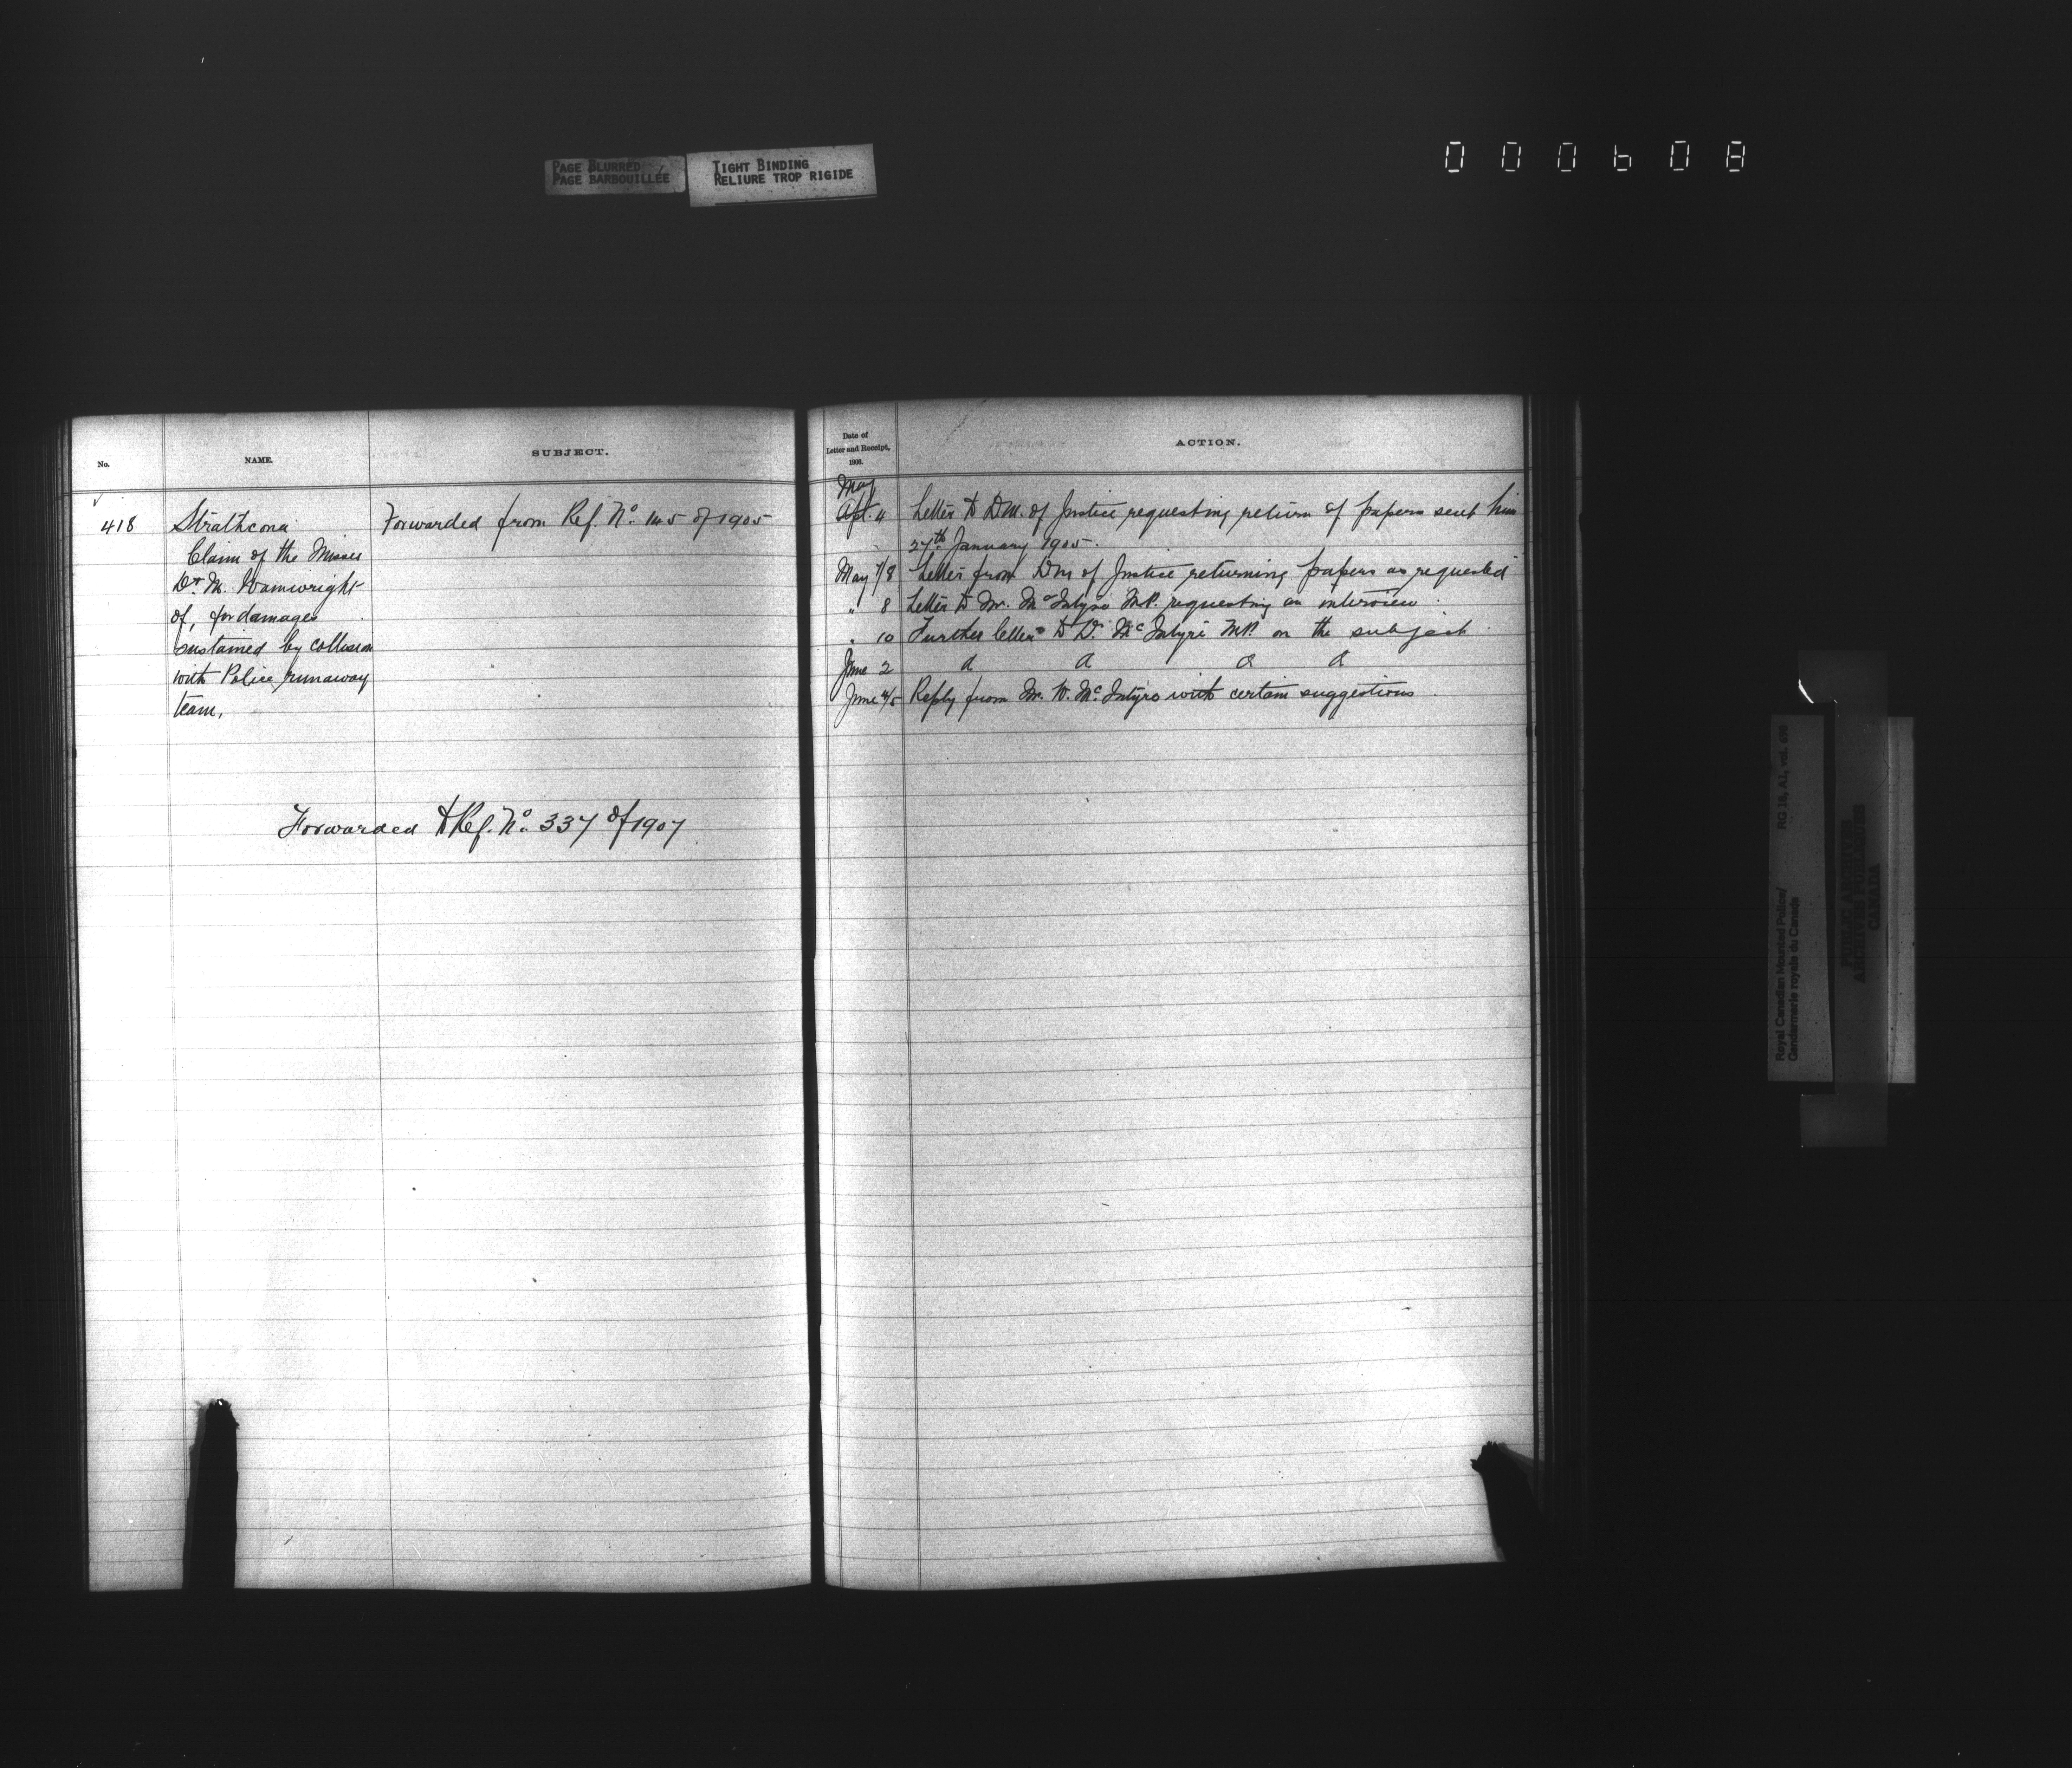 PAGE BLURRED
PAGE BARBOUILLÉE
TIGHT BINDING
RELIURE TROP RIGIDE
000608
No.
NAME.
SUBJECT.
418
Strathcona
Claim of the Misses
D & M. Wainwright
of, for damages
sustained by collision
with Police runaway
team.
Forwarded from Ref. No. 145 of 1905
Forwarded to Ref. No. 337 of 1907
Date of
Letter and Receipt,
1906.
ACTION.
May
Apl. 4 Letter to D.M. of Justice requesting return of papers sent him
27th January 1905.
May 7/8 Letter from DM of Justice returning papers as requested
" 8 Letter to Mr. McIntyre M.P. requesting an interview
" 10 Further letter to Dr. McIntyre M.P. on the subject
June 2
June 4/5 Reply from Mr. W. McIntyre with certain suggestions
Royal Canadian Mounted Police/
Gendarmerie royale du Canada
RG 18, A1, vol.
PUBLIC ARCHIVES
ARCHIVES PUBLIQUES
CANADA